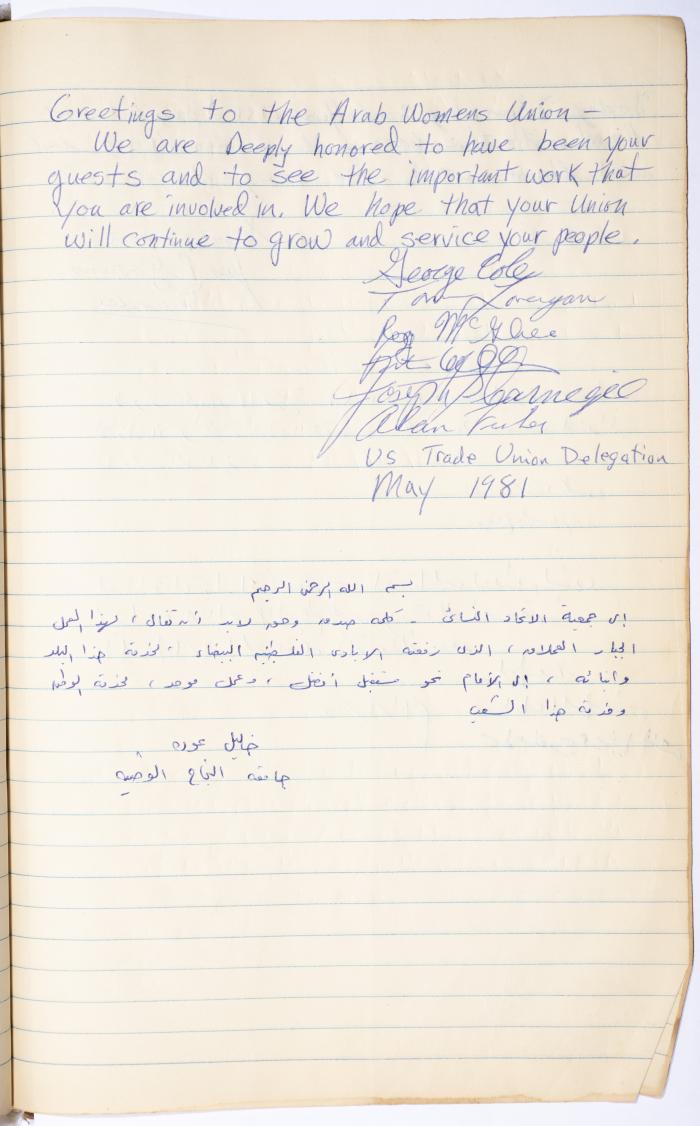 Greetings to the Arab Womens Union –
We are Deeply honored to have been your
guests and to see the important work that
you are involved in. We hope that your Union
will continue to grow and service your people.
George Cole
Tom
Reg McGhee
Joseph Carnegie
Alan
US Trade Union Delegation
May 1981
بسم الله الرحمن الرحيم
إلى جمعية الاتحاد النسائي - كلمة صدق وحق لابد أن تقال، لهذا العمل
الجبار العملاق، الذي رفعته الايادي الفلسطينيه البيضاء، لخدمة هذا البلد
وابنائه، إلى الأمام نحو مستقبل أفضل، وعمل موحد، لخدمة الوطن
وخدمة هذا الشعب
خليل عوده
جامعة النجاح الوطنيه